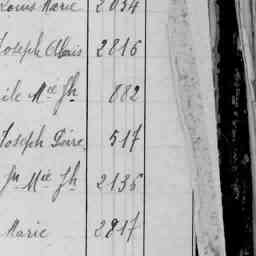 Louis Marie 2034
Joseph Alexis 2816
ile Mie Jh 882
Joseph Désiré 517
Jn Mie Jh 2136
Marie 2817